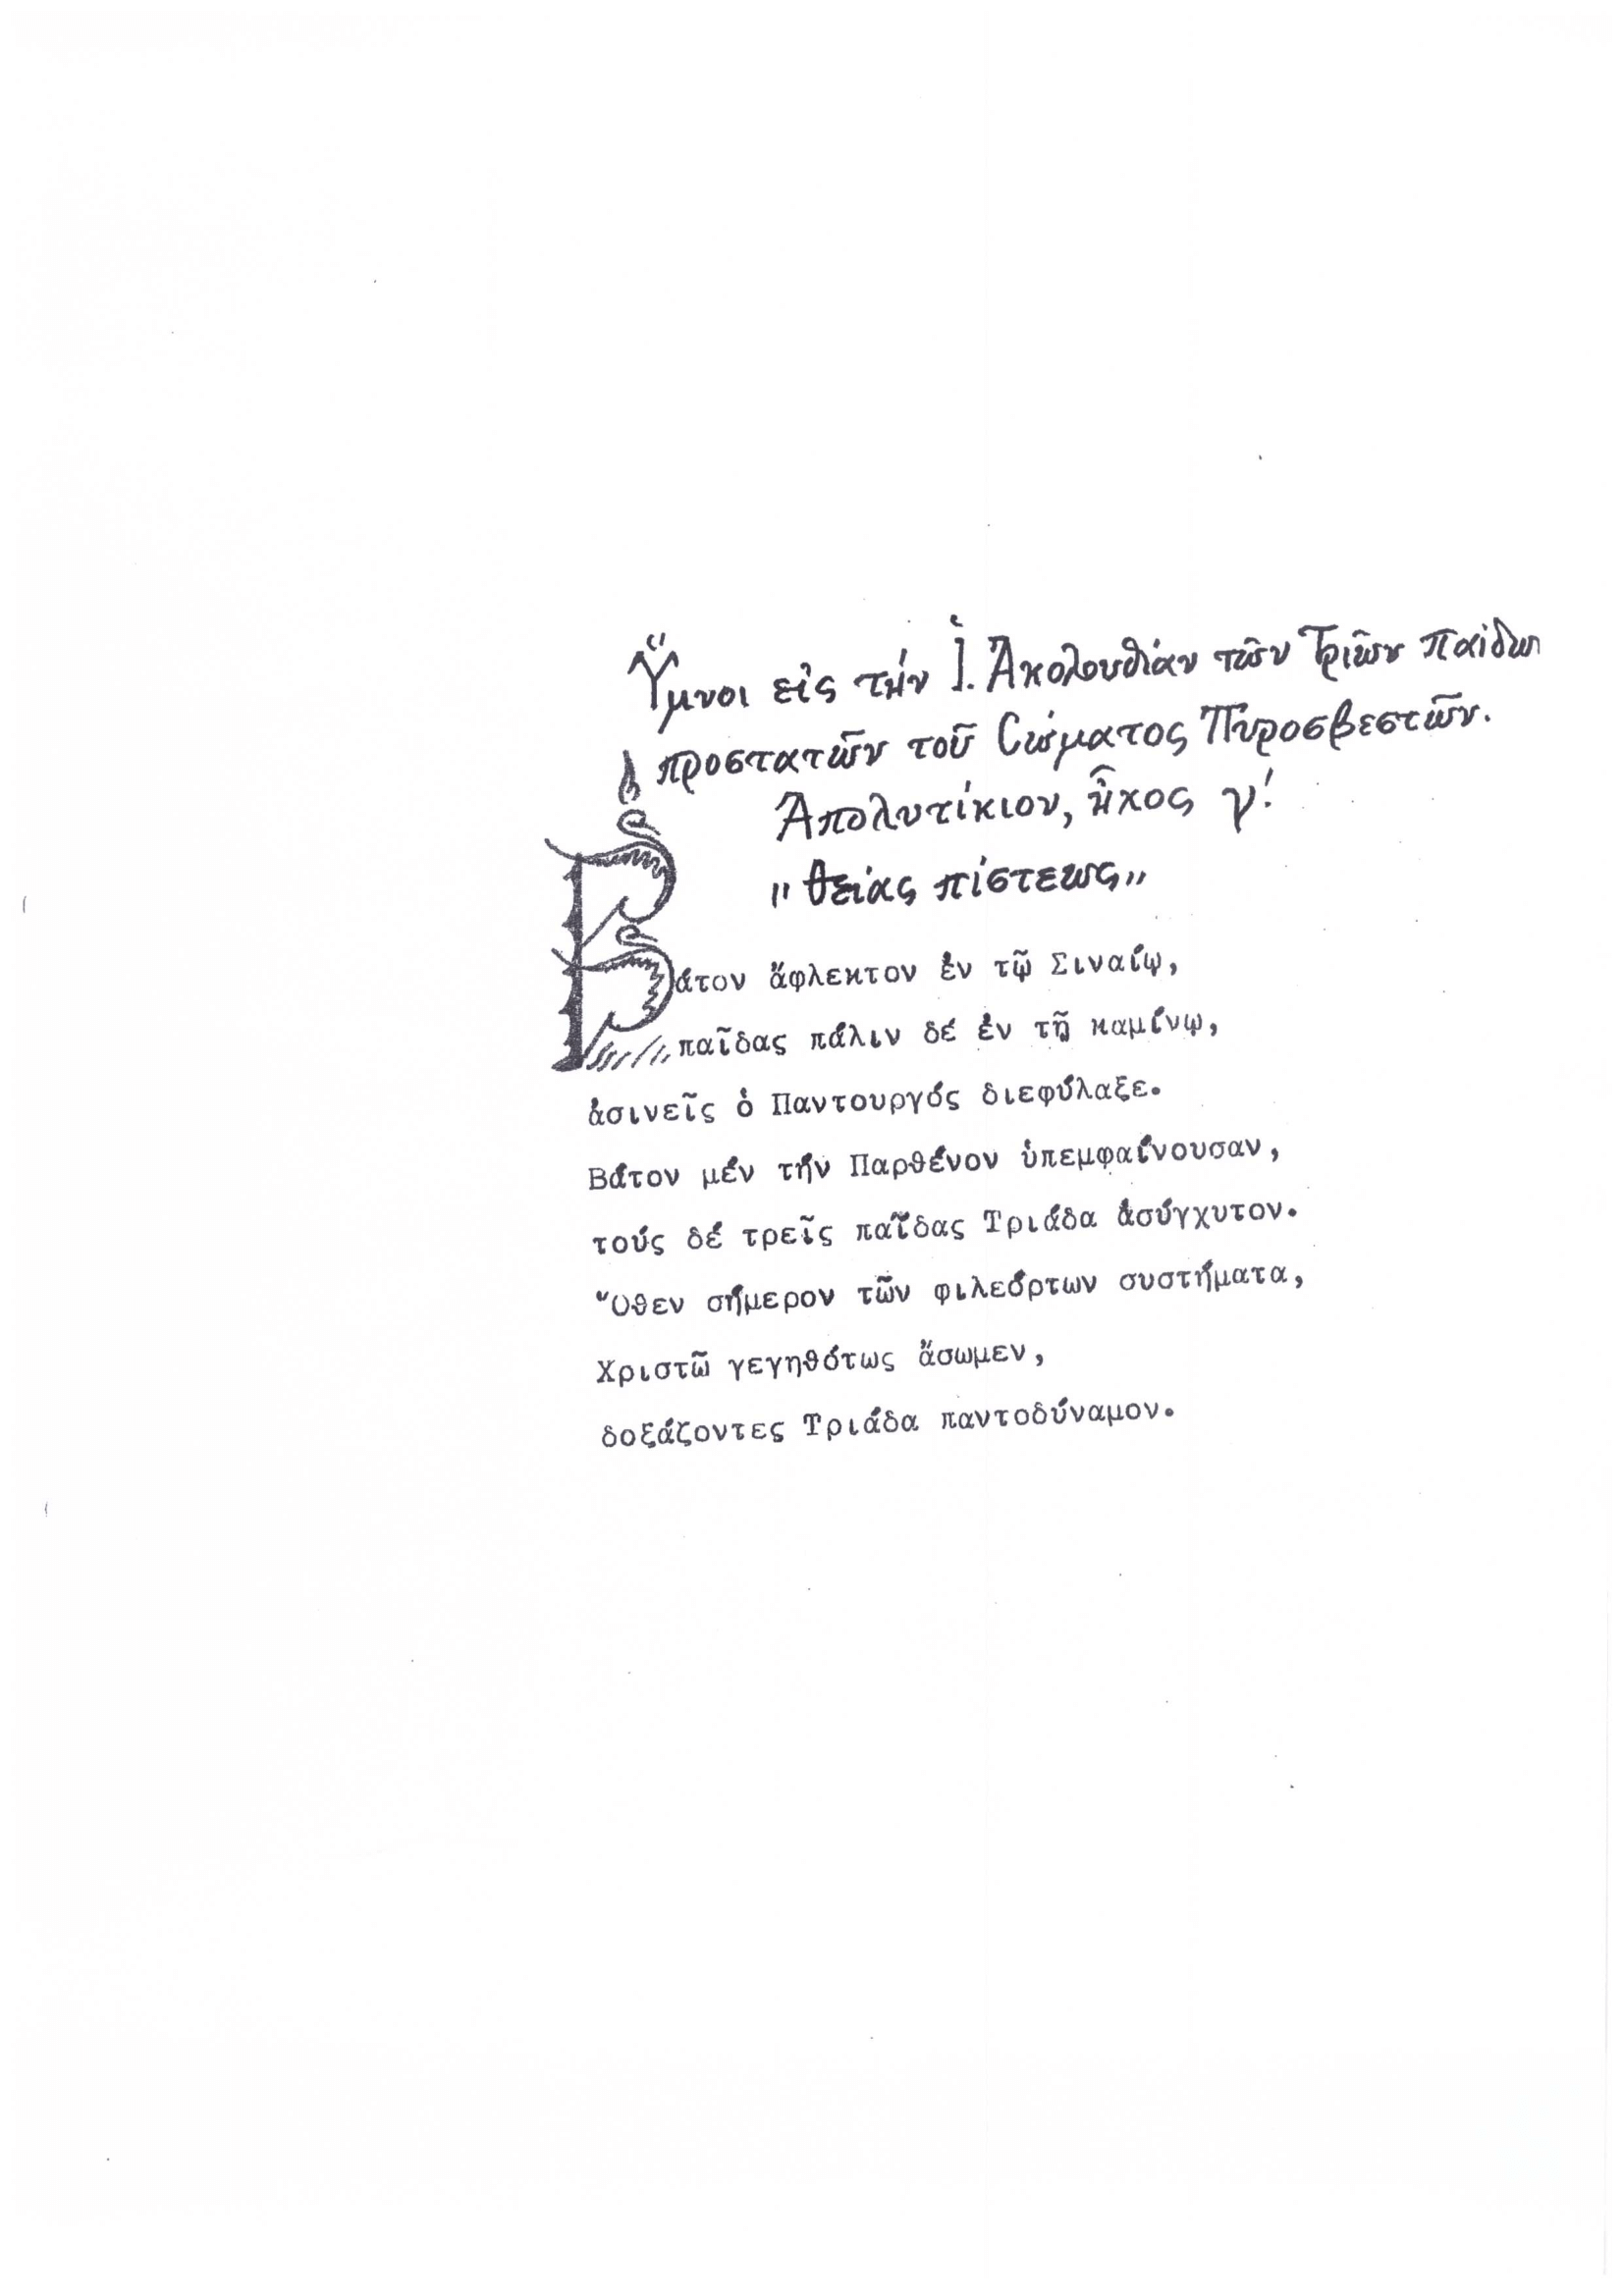 Ὕμνοι εἰς τήν Ἱ. Ἀκολουθίαν τῶν Τριῶν παίδων
προστατῶν τοῦ Σώματος Πυροσβεστῶν.
Ἀπολυτίκιον, ἦχος γ΄.
"θείας πίστεως"
Βάτον ἄφλεκτον ἐν τῷ Σιναίῳ,
παῖδας πάλιν δέ ἐν τῇ καμίνῳ,
ἀσινεῖς ὁ Παντουργός διεφύλαξε.
Βάτον μέν τήν Παρθένον ὑπεμφαίνουσαν,
τούς δέ τρεῖς παῖδας Τριάδα ἀσύγχυτον.
Ὅθεν σήμερον τῶν φιλεόρτων συστήματα,
Χριστῷ γεγηθότως ἄσωμεν,
δοξάζοντες Τριάδα παντοδύναμον.